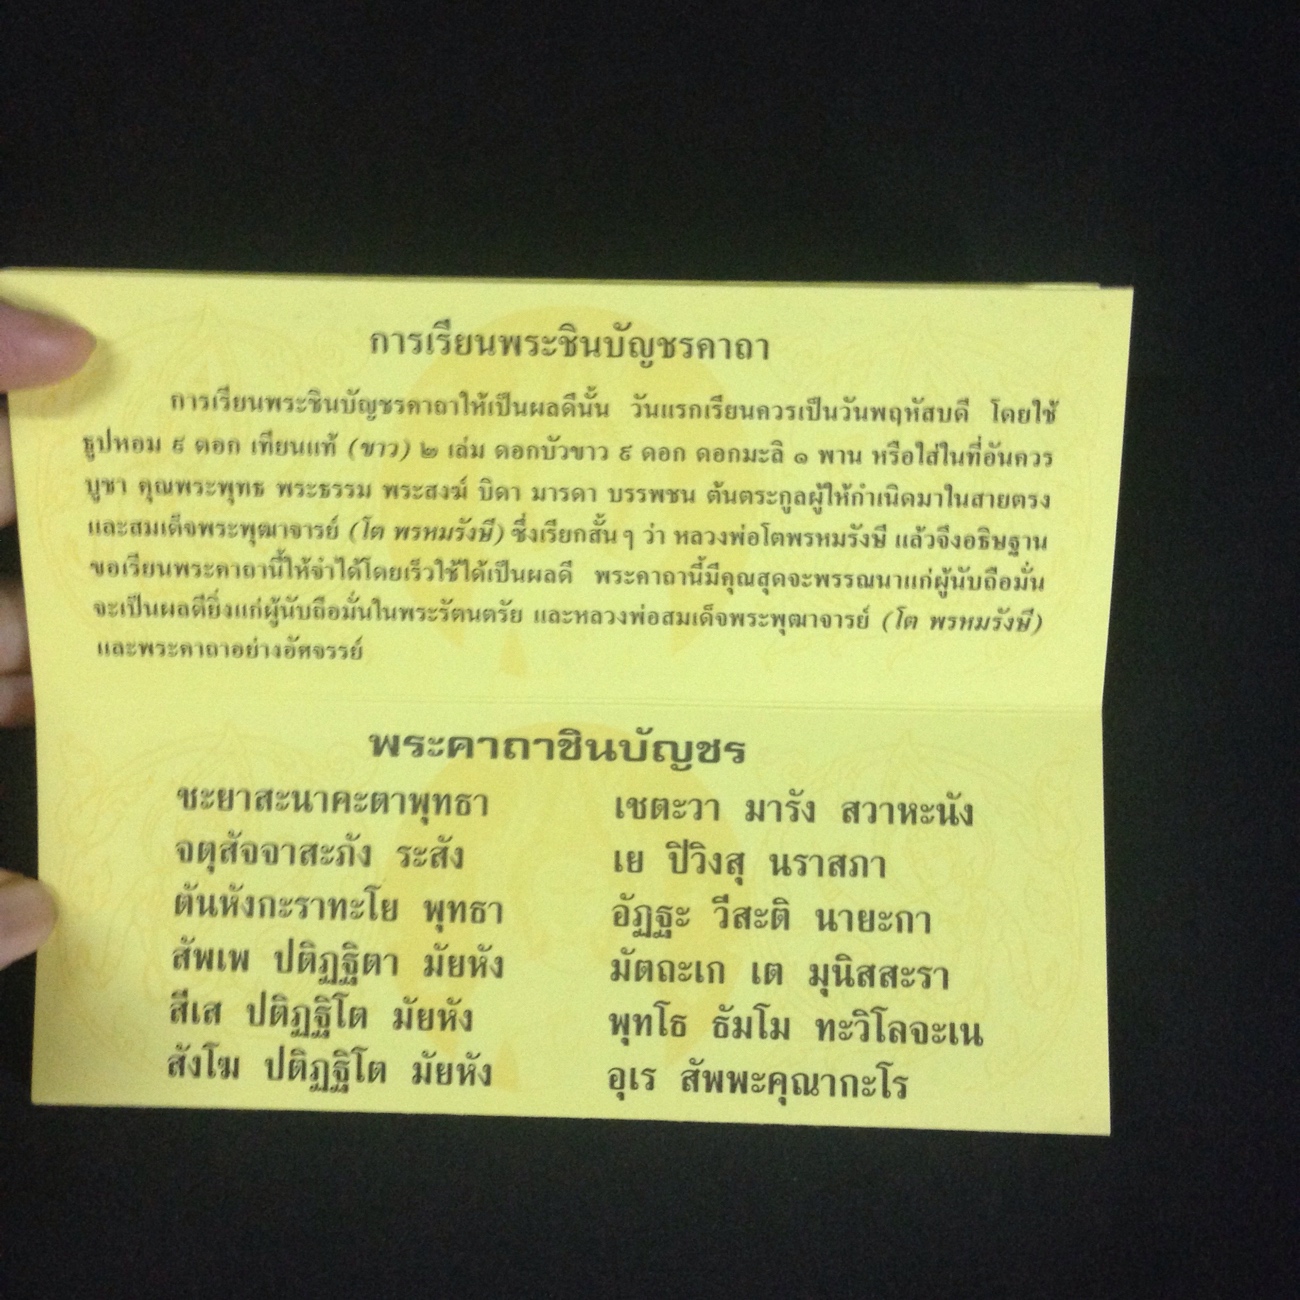 การเรียนพระชินบัญชรคาถา
การเรียนพระชินบัญชรคาถาให้เป็นผลดีนั้น วันแรกเรียนควรเป็นวันพฤหัสบดี โดยใช้
ธูปหอม ๙ ดอก เทียนแท้ (ขาว) ๒ เล่ม ดอกบัวขาว ๙ ดอก ดอกมะลิ ๑ พาน หรือใส่ในที่อันควร
บูชา คุณพระพุทธ พระธรรม พระสงฆ์ บิดา มารดา บรรพชน ต้นตระกูลผู้ให้กำเนิดมาในสายตรง
และสมเด็จพระพุฒาจารย์ (โต พรหมรังษี) ซึ่งเรียกสั้นๆ ว่า หลวงพ่อโตพรหมรังษี แล้วจึงอธิษฐาน
ขอเรียนพระคาถานี้ให้จำได้โดยเร็วใช้ได้เป็นผลดี พระคาถานี้มีคุณสุดจะพรรณนาแก่ผู้นับถือมั่น
จะเป็นผลดียิ่งแก่ผู้นับถือมั่นในพระรัตนตรัย และหลวงพ่อสมเด็จพระพุฒาจารย์ (โต พรหมรังษี)
และพระคาถาอย่างอัศจรรย์
พระคาถาชินบัญชร
ชะยาสะนาคะตาพุทธา เชตะวา มารัง สวาหะนัง
จตุสัจจาสะภัง ระสัง เย ปิวิงสุ นราสภา
ตันหังกะราทะโย พุทธา อัฏฐะ วีสะติ นายะกา
สัพเพ ปติฏฐิตา มัยหัง มัตถะเก เต มุนิสสะรา
สีเส ปติฏฐิโต มัยหัง พุทโธ ธัมโม ทะวิโลจะเน
สังโฆ ปติฏฐิโต มัยหัง อุเร สัพพะคุณากะโร